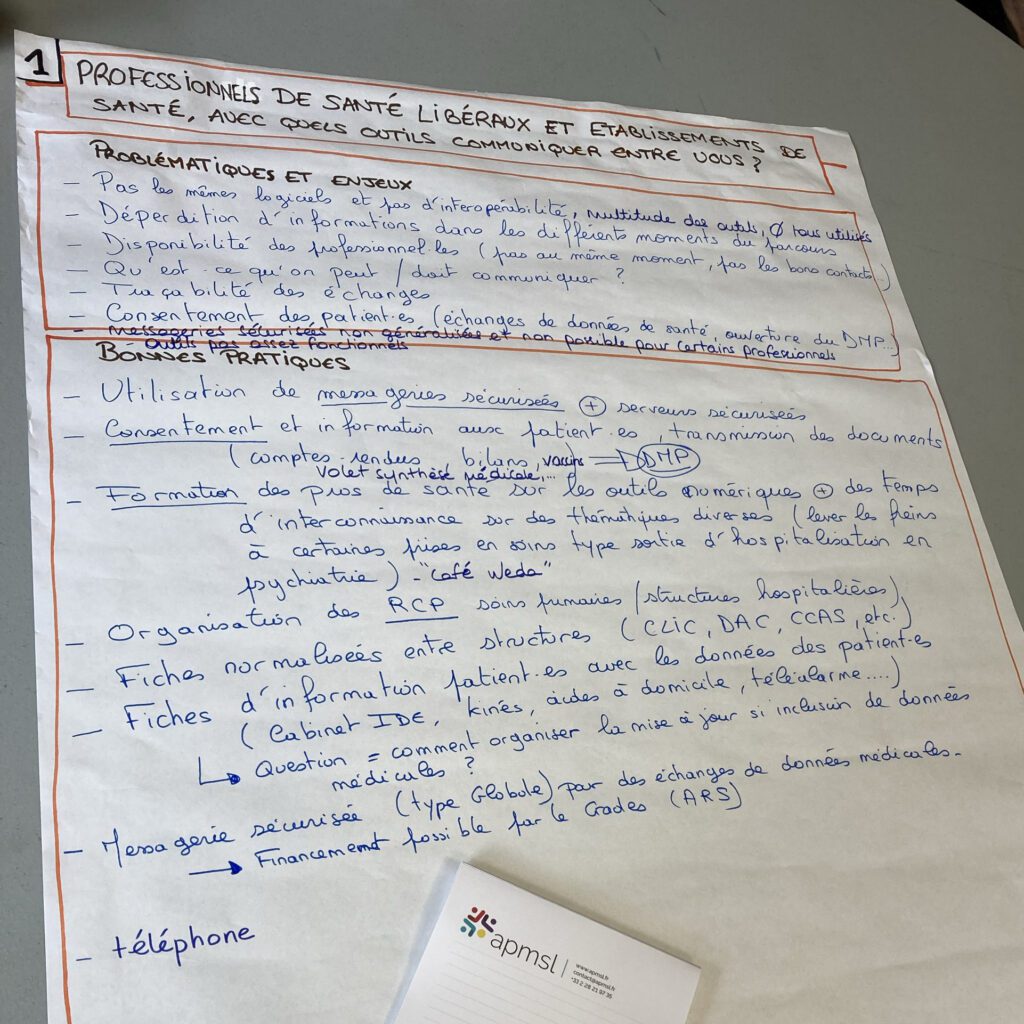 1
PROFESSIONNELS DE SANTÉ LIBÉRAUX ET ETABLISSEMENTS DE
SANTÉ, AVEC QUELS OUTILS COMMUNIQUER ENTRE VOUS ?
PROBLÉMATIQUES ET ENJEUX
- Pas les mêmes logiciels et pas d'interopérabilité, multitude des outils, Ø tous utilisés
- Déperdition d'informations dans les différents moments du parcours
- Disponibilité des professionnel·les (pas au même moment, pas les bons contacts)
- Qu'est-ce qu'on peut / doit communiquer ?
- Traçabilité des échanges
- Consentement des patient·es (échanges de données de santé, ouverture du DMP...)
- Messageries sécurisées non généralisées et non possible pour certains professionnels
- Outils pas assez fonctionnels
BONNES PRATIQUES
- Utilisation de messageries sécurisées + serveurs sécurisés
- Consentement et information aux patient·es, transmission des documents
(comptes-rendus, bilans, vaccins => DMP
volet synthèse médicale,...
- Formation des pros de santé sur les outils numériques + des temps
d'interconnaissance sur des thématiques diverses (lever les freins
à certaines prises en soins type sortie d'hospitalisation en
psychiatrie) - "Café Weda"
- Organisation des RCP soins primaires / structures hospitalières
- Fiches normalisées entre structures (CLIC, DAC, CCAS, etc.)
- Fiches d'information patient·es avec les données des patient·es
(Cabinet IDE, kinés, aides à domicile, téléalarme....)
↳ Question = comment organiser la mise à jour si inclusion de données
médicales ?
- Messagerie sécurisée (type Globule) pour des échanges de données médicales.
→ Financement possible par le Grades (ARS)
- téléphone
apmsl
www.apmsl.fr
contact@apmsl.fr
+33 2 28 21 97 36